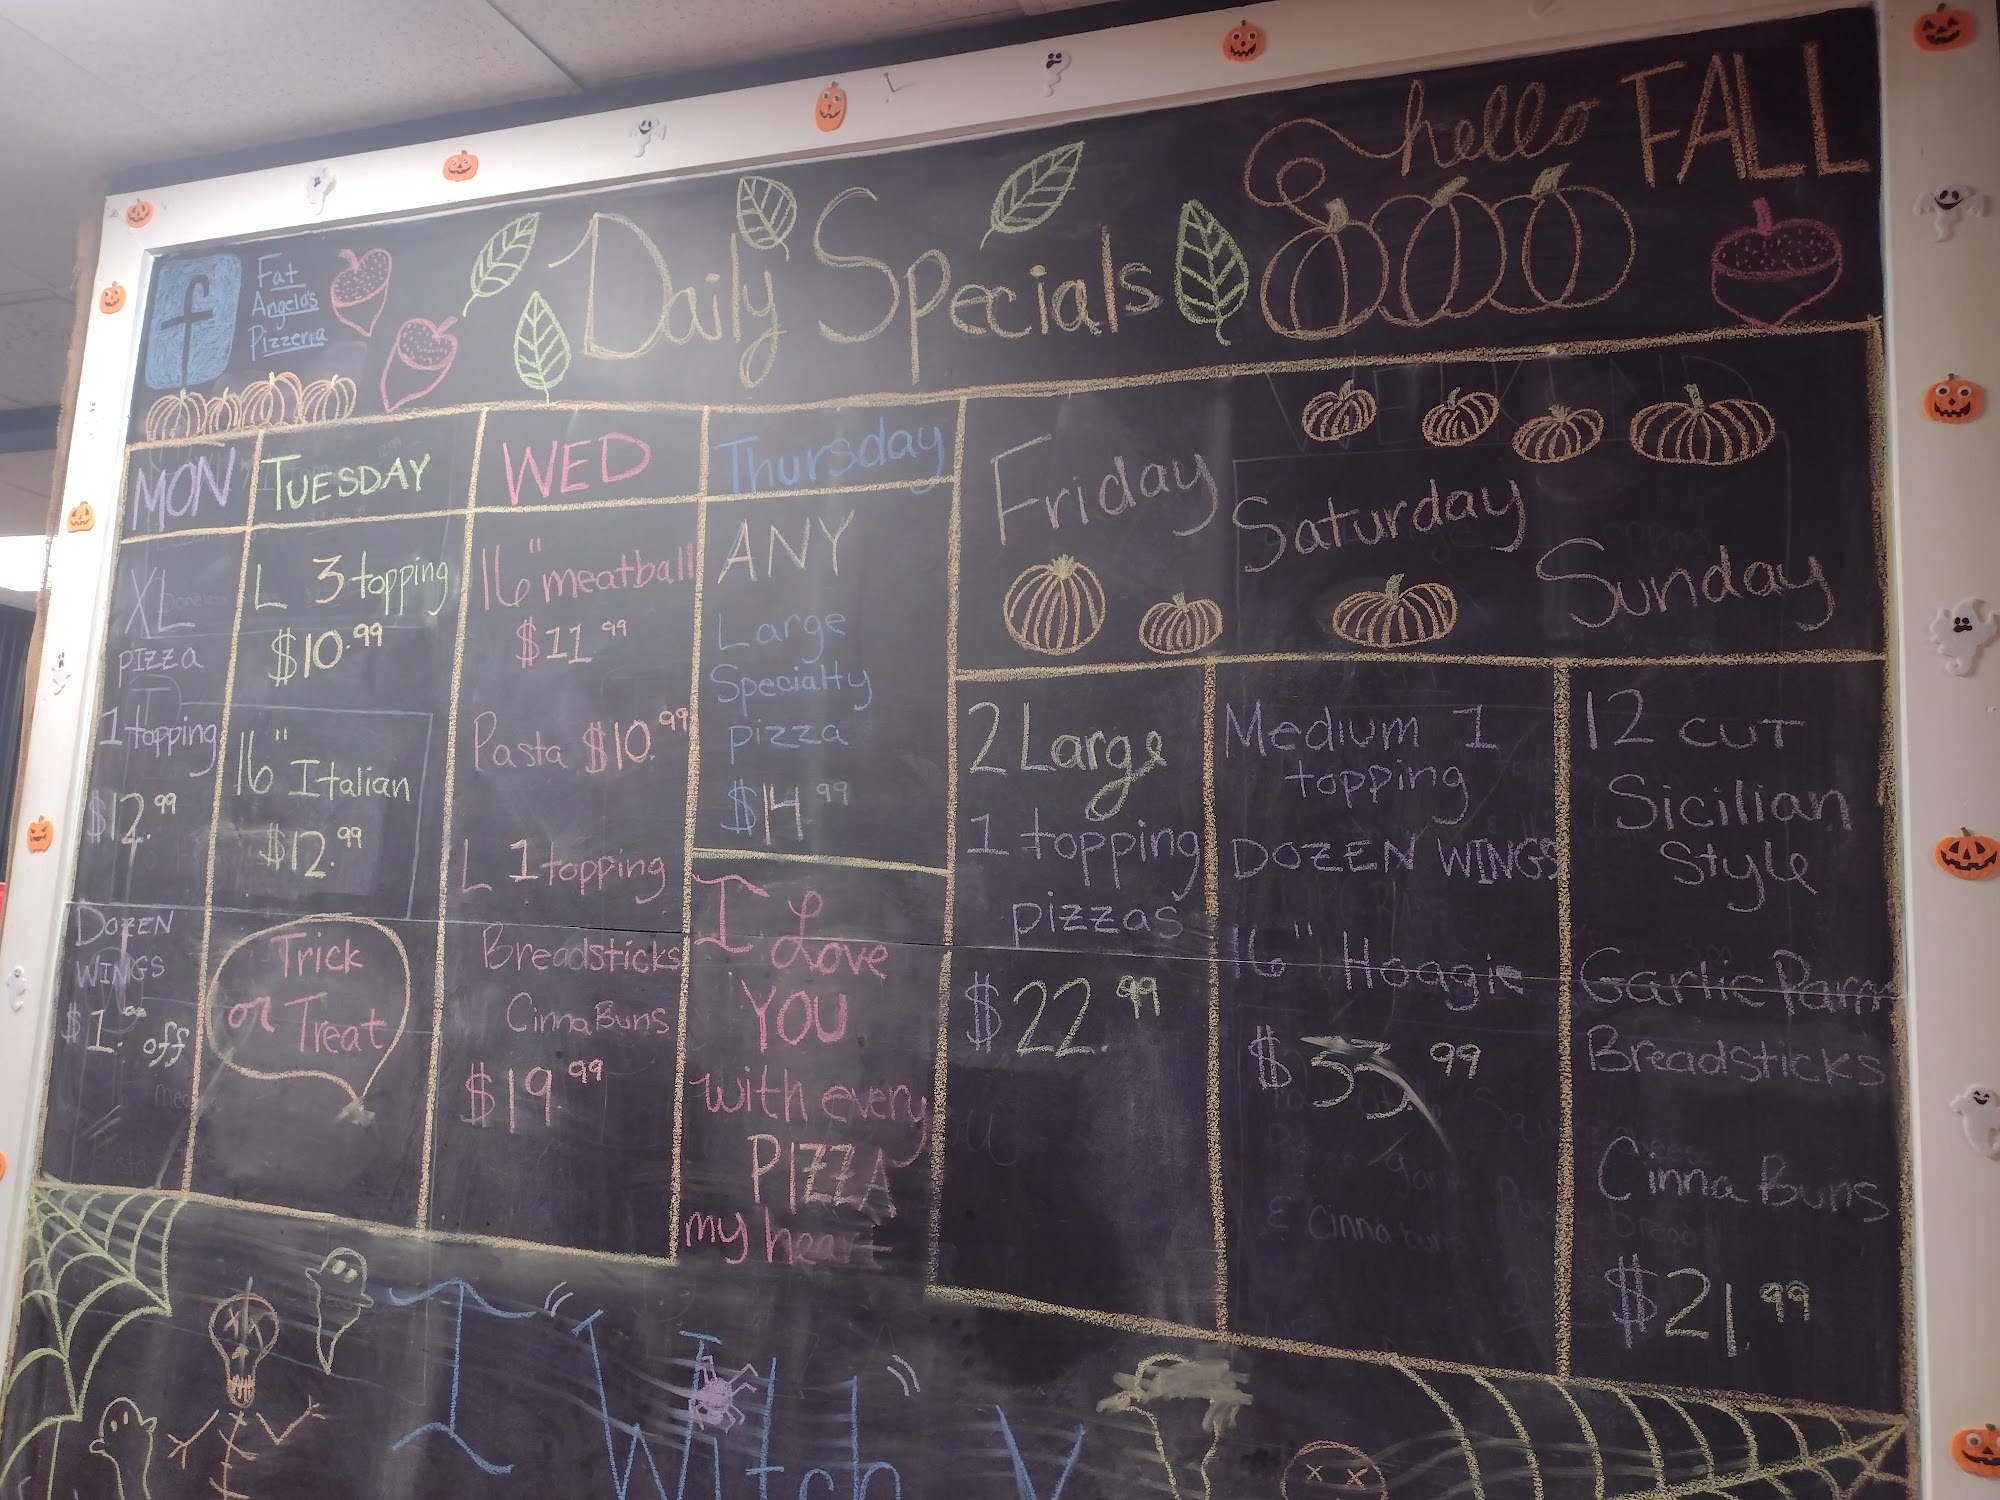 hello FALL
Daily Specials
f
Fat
Angelo's
Pizzeria
MON
XL
PIZZA
1 topping
$12.99
DOZEN
WINGS
$1.00 off
TUESDAY
L 3 topping
$10.99
16" Italian
$12.99
Trick
or Treat
WED
16" meatball
$11.99
Pasta $10.99
L 1 topping
Breadsticks
Cinna Buns
$19.99
Thursday
ANY
Large
Specialty
pizza
$14.99
I Love
YOU
with every
PIZZA
my heart
Friday
Saturday
Sunday
2 Large
1 topping
pizzas
$22.99
Medium 1
topping
DOZEN WINGS
16" Hoagie
$33.99
12 CUT
Sicilian
Style
Garlic Parm
Breadsticks
Cinna Buns
$21.99
I Witch